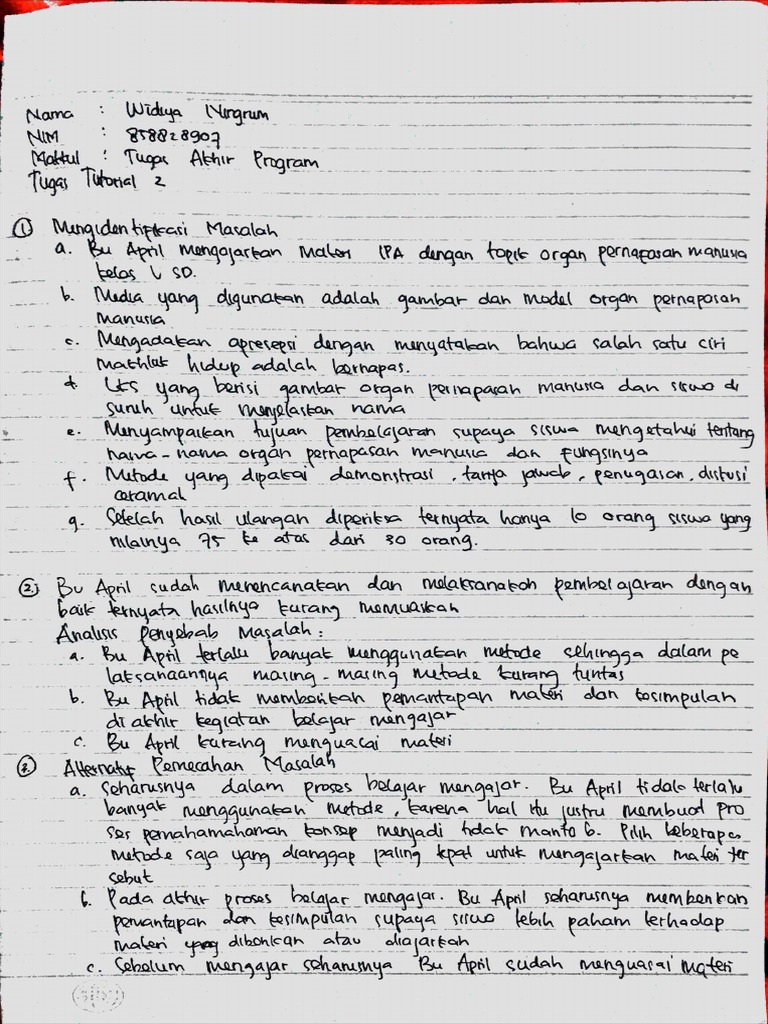 Nama : Widiya Ningrum
NIM : 858828907
Matkul : Tugas Akhir Program
Tugas Tutorial 2
① Mengidentifikasi Masalah
a. Bu April mengajarkan materi IPA dengan topik organ pernapasan manusia
kelas V SD.
b. Media yang digunakan adalah gambar dan model organ pernapasan
manusia
c. Mengadakan apresepsi dengan menyatakan bahwa salah satu ciri
makhluk hidup adalah bernapas.
d. LKS yang berisi gambar organ pernapasan manusia dan siswa di
suruh untuk menjelaskan nama
e. Menyampaikan tujuan pembelajaran supaya siswa mengetahui tentang
nama-nama organ pernapasan manusia dan fungsinya
f. Metode yang dipakai demonstrasi, tanya jawab, penugasan, diskusi
ceramah
g. Setelah hasil ulangan diperiksa ternyata hanya 10 orang siswa yang
nilainya 75 ke atas dari 30 orang.
② Bu April sudah merencanakan dan melaksanakan pembelajaran dengan
baik ternyata hasilnya kurang memuaskan
Analisis Penyebab Masalah :
a. Bu April terlalu banyak menggunakan metode sehingga dalam pe
laksanaannya masing-masing metode kurang tuntas
b. Bu April tidak memberikan pemantapan materi dan kesimpulan
di akhir kegiatan belajar mengajar
c. Bu April kurang menguasai materi
③ Alternatif Pemecahan Masalah
a. Seharusnya dalam proses belajar mengajar. Bu April tidak terlalu
banyak menggunakan metode, karena hal itu justru membuat pro
ses pemahamahaman konsep menjadi tidak mantab. Pilih beberapa
metode saja yang dianggap paling tepat untuk mengajarkan materi ter
sebut
b. Pada akhir proses belajar mengajar. Bu April seharusnya memberikan
pemantapan dan kesimpulan supaya siswa lebih paham terhadap
materi yang diberikan atau diajarkan
c. Sebelum mengajar seharusnya Bu April sudah menguasai materi